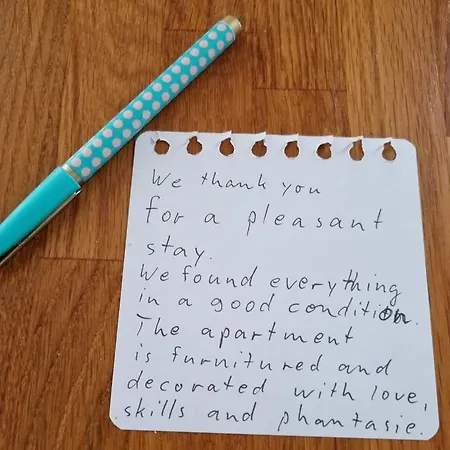 We thank you
for a pleasant
stay.
We found everything
in a good condition.
The apartment
is furnitured and
decorated with love,
skills and phantasie.